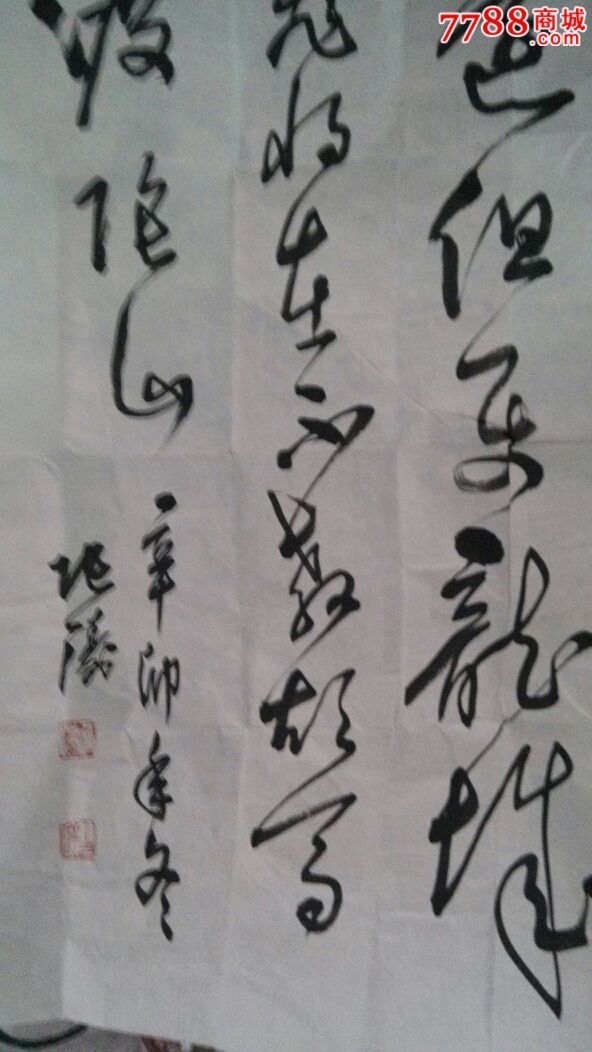 7788商城
.com
还但使龍城
飛将在不教胡馬
渡陰山
辛卯年冬